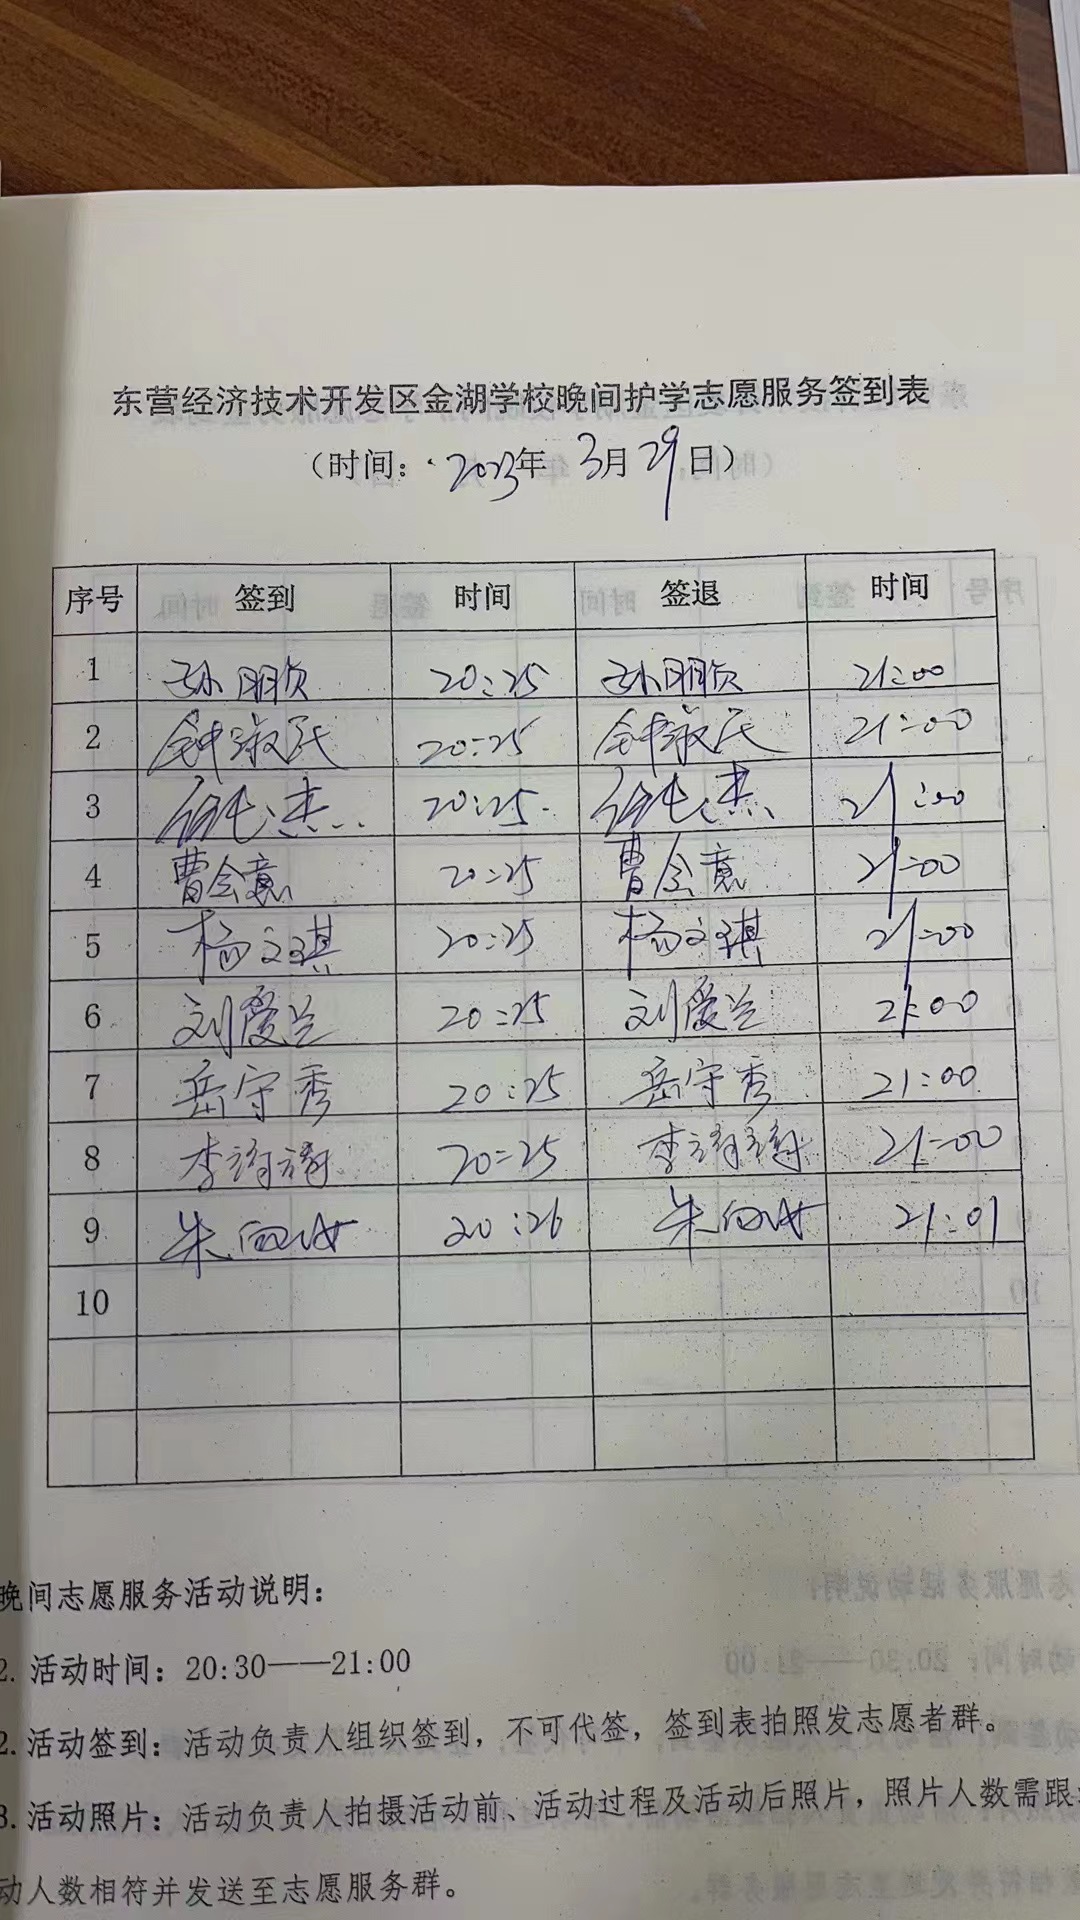 东营经济技术开发区金湖学校晚间护学志愿服务签到表
（时间：2023年 3月29日）
序号 签到 时间 签退 时间
1 孙朋贞 20:25 孙朋贞 21:00
2 钟淑民 20:25 钟淑民 21:00
3 20:25 21:00
4 曹会意 20:25 曹会意 21:00
5 杨文琪 20:25 杨文琪 21:00
6 刘爱兰 20:25 刘爱兰 21:00
7 岳守秀 20:25 岳守秀 21:00
8 李 20:25 李 21:00
9 朱 20:26 朱 21:01
10
晚间志愿服务活动说明：
2. 活动时间：20:30——21:00
2. 活动签到：活动负责人组织签到，不可代签，签到表拍照发志愿者群。
3. 活动照片：活动负责人拍摄活动前、活动过程及活动后照片，照片人数需跟
动人数相符并发送至志愿服务群。